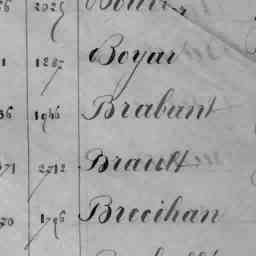 2025
1 1287 Boyar
36 1946 Brabant
371 2712 Brault
70 1796 Brecihan